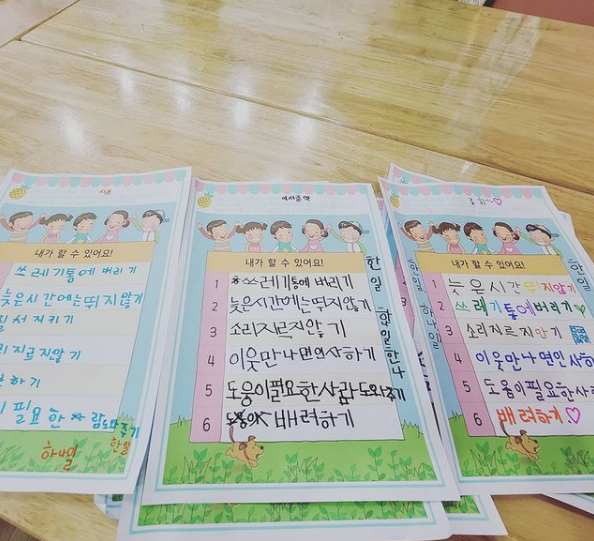 내가 할 수 있어요!
쓰레기통에 버리기
늦은시간에는뛰지않기
질서지키기
필요한사람도와주기
한일
하나일
내가 할 수 있어요!
1 쓰레기통에 버리기
2 늦은시간에는뛰지않기
3 소리지르지않기
4 이웃만나면인사하기
5 도움이필요한사람도와주기
6 배려하기
한일
내가 할 수 있어요!
1 늦은시간 뛰지않기
2 쓰레기통에버리기
3 소리지르지않기
4 이웃만나면인사하
5 도움이필요한사
6 배려하기
한일